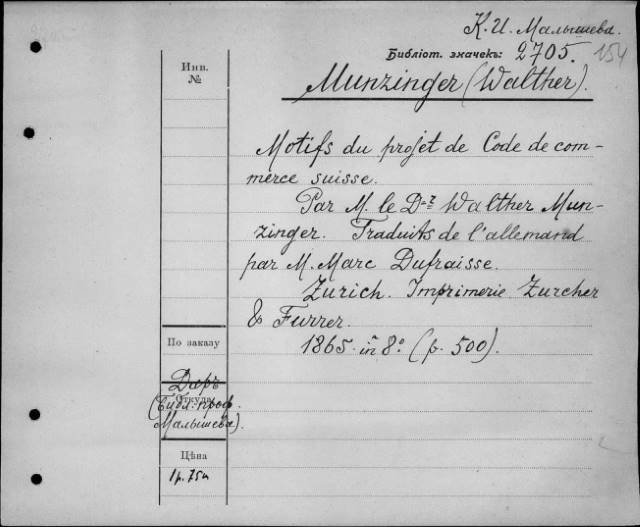 К. И. Малышева.
Библіот. значекъ: 2705. 154
Инв.
№
Munzinger (Walther).
Motifs du projet de Code de com-
merce suisse.
Par M. le Dr Walther Mun-
zinger. Traduits de l'allemand
par M. Marc Dufraisse.
Zurich. Imprimerie Zurcher
& Furrer.
1865. in 8º. (p. 500).
По заказу
Даръ
Откуда
(Библ. проф.
Малышева).
Цѣна
1р. 75к